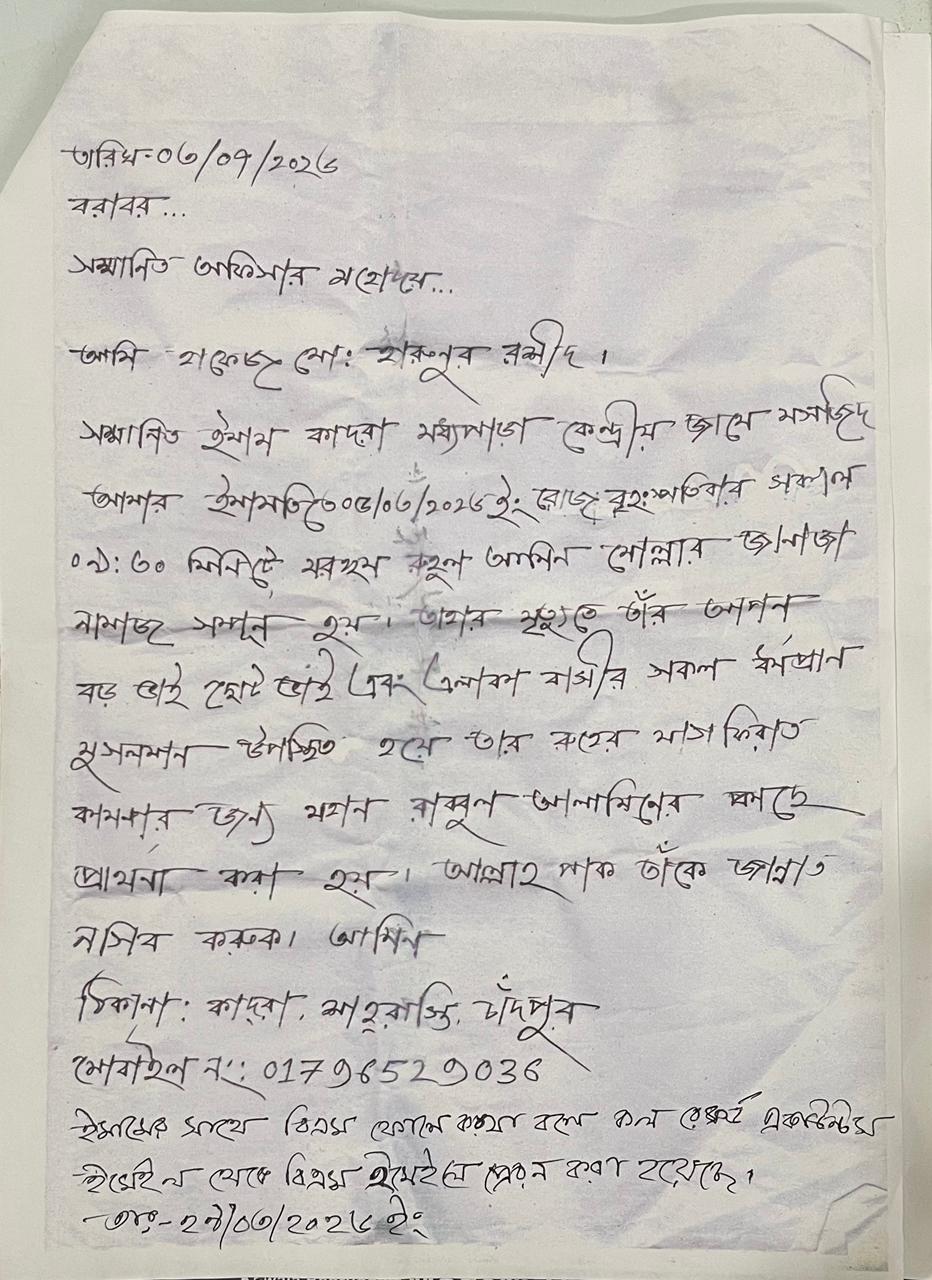 তারিখ-০৬/০৭/২০২৬
বরাবর...
সম্মানিত অফিসার মহোদয়...
আমি হাফেজ মো: হারুনুর রশীদ।
সম্মানিত ইমাম কাদরা মধ্যপাড়া কেন্দ্রীয় জামে মসজিদ
আমার ইমামতিতে ০৫/০৬/২০২৬ ইং রোজ বৃহঃস্পতিবার সকাল
০৯:৩০ মিনিটে মরহুম রুহুল আমিন মোল্লার জানাজা
নামাজ সম্পূর্ন হয়। তাহার মৃত্যুতে তাঁর আপন
বড় ভাই ছোট ভাই এবং এলাকা বাসীর সকল ধর্মপ্রান
মুসলমান উপস্থিত হয়ে তার রুহের মাগফিরাত
কামনার জন্য মহান রাব্বুল আলামিনের কাছে
প্রার্থনা করা হয়। আল্লাহ পাক তাঁকে জান্নাত
নসিব করুক। আমিন
ঠিকানা: কাদ্‌রা, শাহ্‌রাস্তি, চাঁদপুর
মোবাইল নং: 01796529036
ইমামের সাথে বিএম ফোনে কথা বলে কল রেকর্ড
ইমেইল থেকে বিএম ইমেইলে প্রেরন করা হয়েছে।